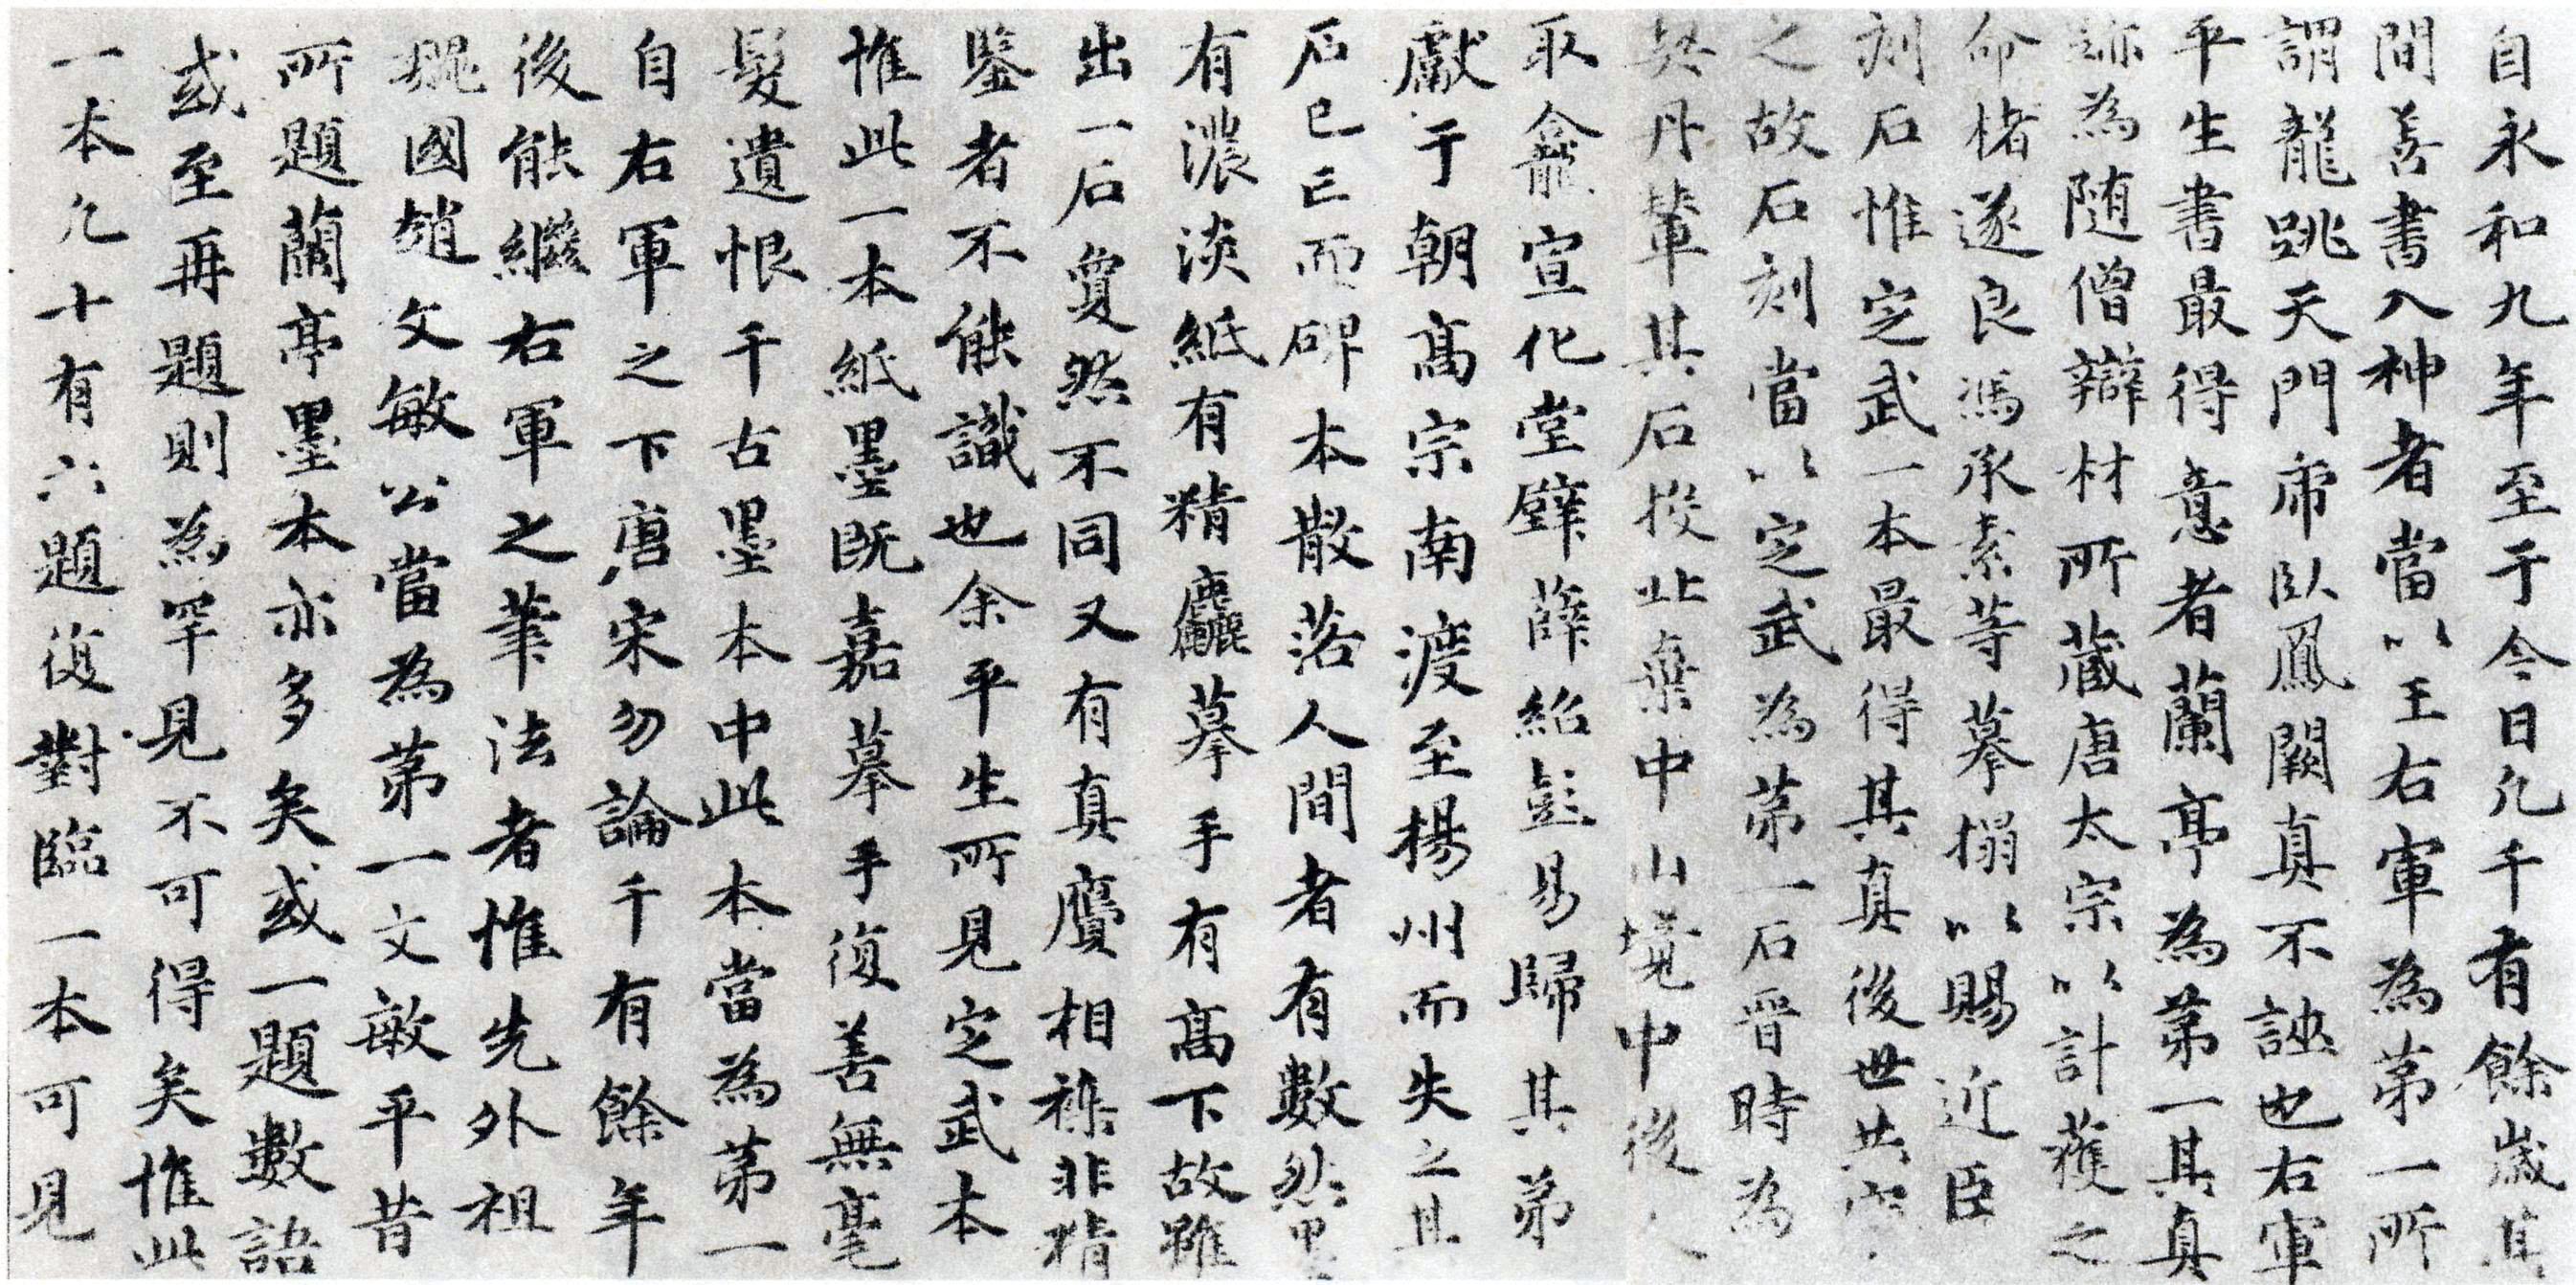 自永和九年至于今日凢千有餘歳其
間善書入神者當以王右軍為苐一所
謂龍跳天門席臥鳳闕真不誣也右軍
平生書最得意者蘭亭為苐一其真
跡為随僧辯材所藏唐太宗以計獲之
命楮遂良馮承素等摹搨以賜近臣
刻石惟定武一本最得其真後世共
之故石刻當以定武為苐一石晋時為
契丹輦其石投此棄中山境中後人
取龕宣化堂壁薛紹彭易歸其弟
獻于朝髙宗南渡至楊州而失之且
石已亡而碑本散落人間者有數然墨
有濃淡紙有精麤摹手有髙下故雖
出一石敻然不同又有真贗相襍非精
鑒者不能識也余平生所見定武本
惟此一本紙墨既嘉摹手復善無毫
髮遺恨千古墨本中此本當為苐一
自右軍之下唐宋勿論千有餘年
後能繼右軍之筆法者惟先外祖
魏國趙文敏公當為苐一文敏平昔
所題蘭亭墨本亦多矣或一題數語
或至再題則為罕見不可得矣惟此
一本凢十有六題復對臨一本可見